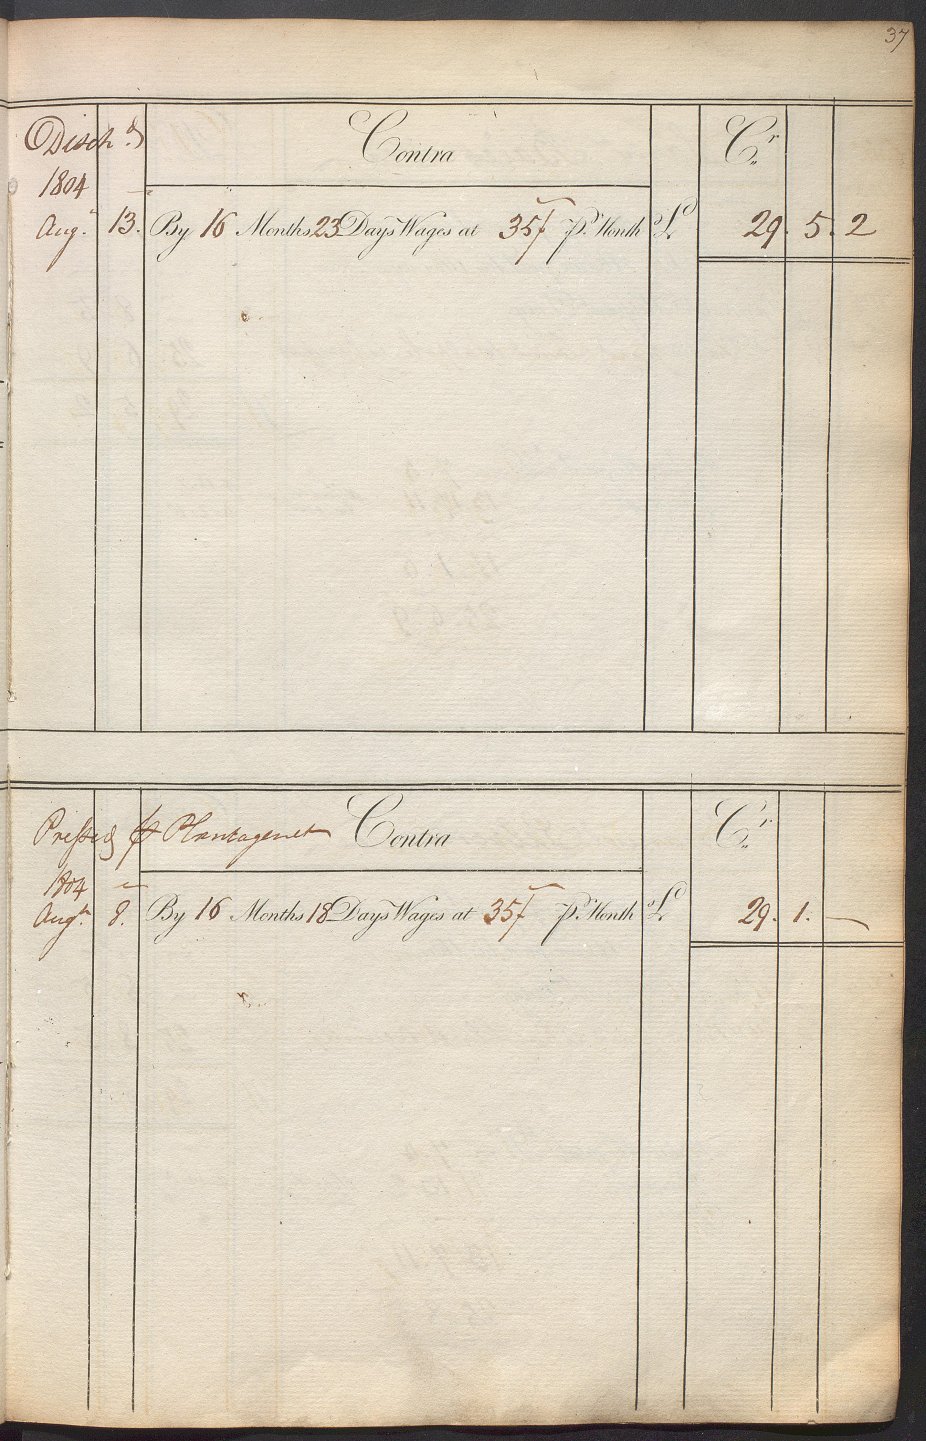 37
Disch.d Contra Cr
1804
Augt 13. By 16 Months 23 Days Wages at 35/ p. Month £ 29. 5. 2
Pressed p Plantagenet Contra Cr
1804
Augt 8. By 16 Months 18 Days Wages at 35/ p. Month £ 29. 1. —